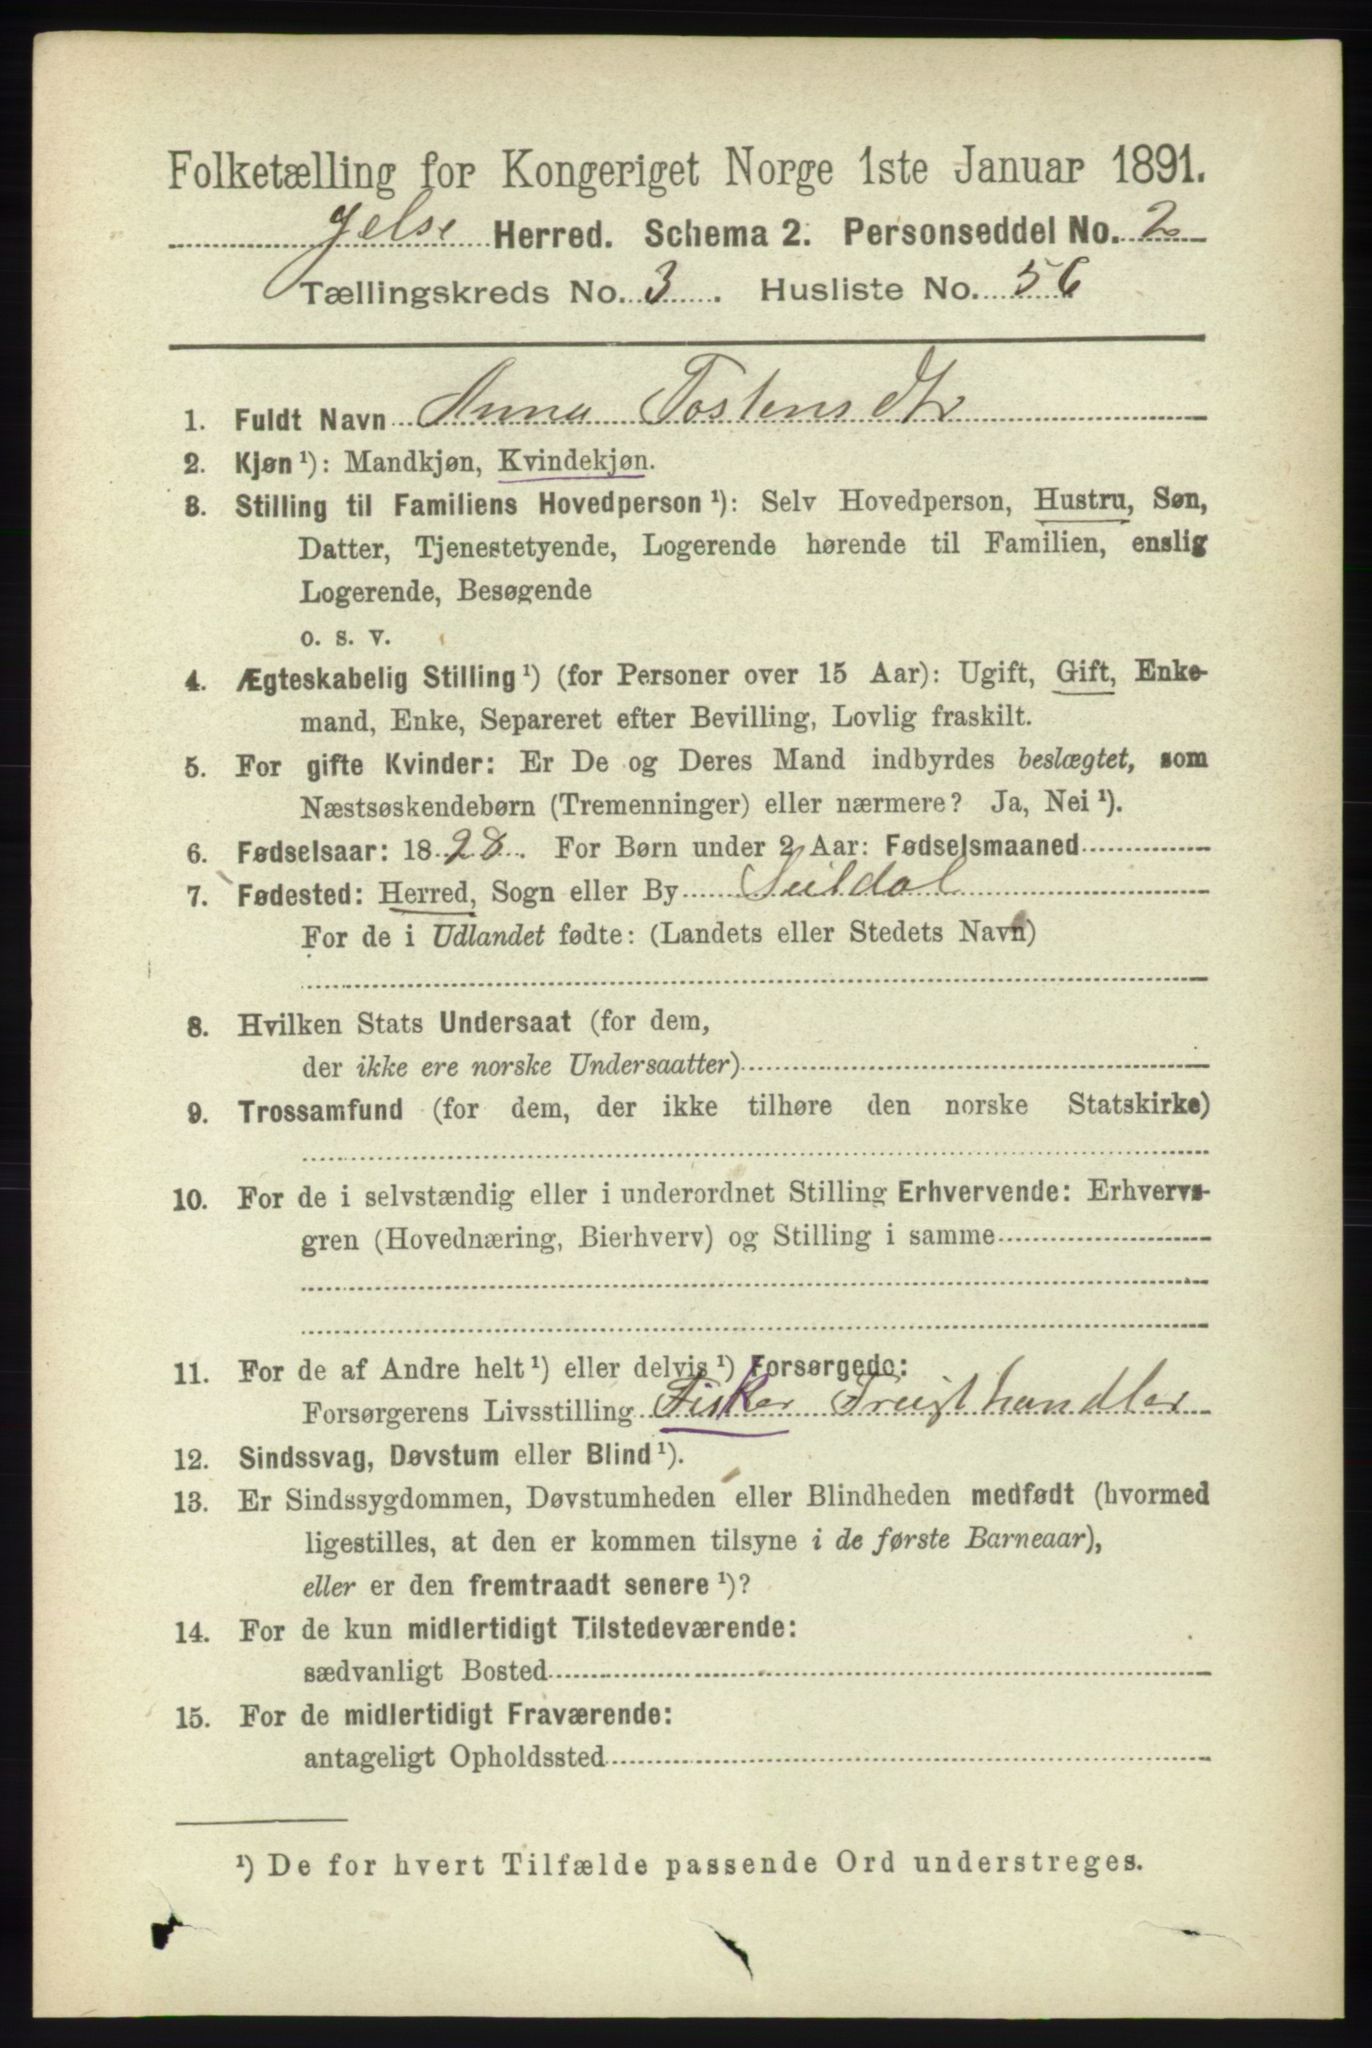 Folketælling for Kongeriget Norge 1ste Januar 1891.
Jelse Herred. Schema 2. Personseddel No. 2
Tællingskreds No. 3. Husliste No. 56
1. Fuldt Navn Anna Tostensdtr
2. Kjøn ¹): Mandkjøn, Kvindekjøn.
3. Stilling til Familiens Hovedperson ¹): Selv Hovedperson, Hustru, Søn,
Datter, Tjenestetyende, Logerende hørende til Familien, enslig
Logerende, Besøgende
o. s. v.
4. Ægteskabelig Stilling ¹) (for Personer over 15 Aar): Ugift, Gift, Enke-
mand, Enke, Separeret efter Bevilling, Lovlig fraskilt.
5. For gifte Kvinder: Er De og Deres Mand indbyrdes beslægtet, som
Næstsøskendebørn (Tremenninger) eller nærmere? Ja, Nei ¹).
6. Fødselsaar: 1828. For Børn under 2 Aar: Fødselsmaaned
7. Fødested: Herred, Sogn eller By Suldal
For de i Udlandet fødte: (Landets eller Stedets Navn)
8. Hvilken Stats Undersaat (for dem,
der ikke ere norske Undersaatter)
9. Trossamfund (for dem, der ikke tilhøre den norske Statskirke)
10. For de i selvstændig eller i underordnet Stilling Erhvervende: Erhvervs-
gren (Hovednæring, Bierhverv) og Stilling i samme
11. For de af Andre helt ¹) eller delvis ¹) Forsørgede:
Forsørgerens Livsstilling Fisker Frugthandler
12. Sindssvag, Døvstum eller Blind ¹).
13. Er Sindssygdommen, Døvstumheden eller Blindheden medfødt (hvormed
ligestilles, at den er kommen tilsyne i de første Barneaar),
eller er den fremtraadt senere ¹)?
14. For de kun midlertidigt Tilstedeværende:
sædvanligt Bosted
15. For de midlertidigt Fraværende:
antageligt Opholdssted
¹) De for hvert Tilfælde passende Ord understreges.